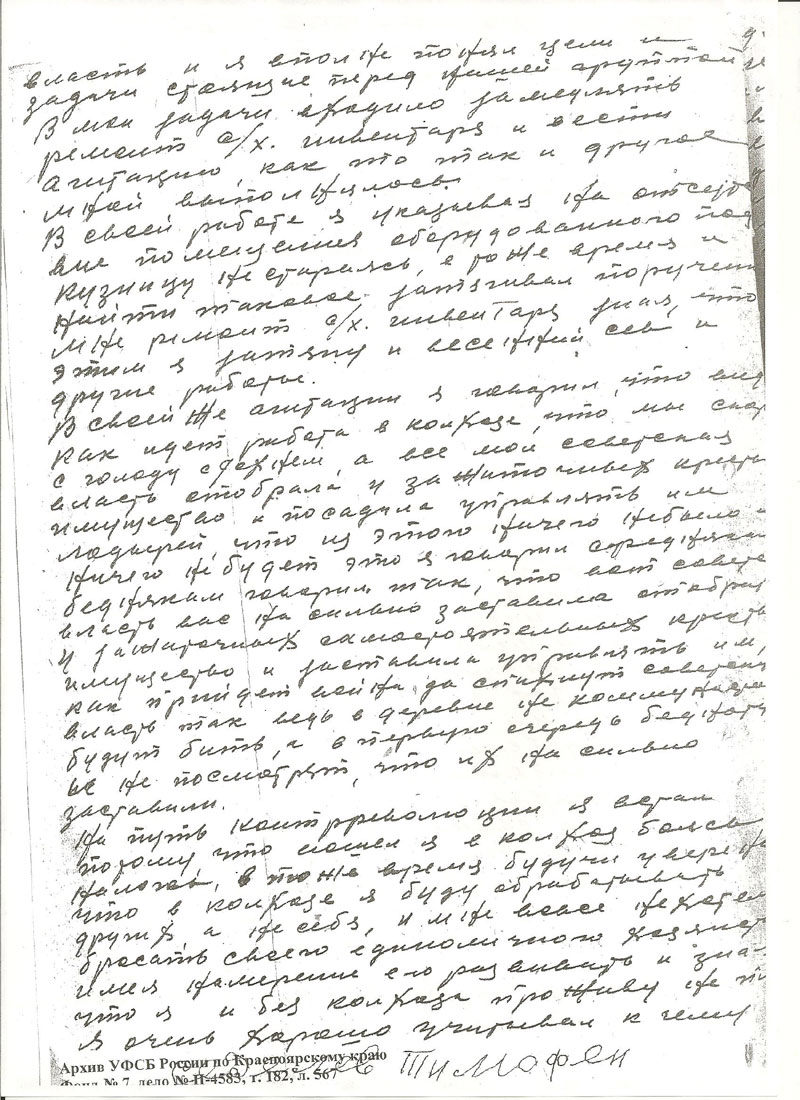 власть и я вполне понял цели и
задачи стоящие перед нашей группой
В мои задачи входило замедлять
ремонт с/х. инвентаря и вести
агитацию, как то так и другое
мной выполнялось.
В своей работе я указывая на отсутс
вие помещения оборудованного под
кузницу не стараясь, в тоже время и
найти таковое затягивал поручен
мне ремонт с/х. инвентаря зная, что
этим я затяну и весенний сев и
другие работы.
В своей же агитации я говорил, что
как идет работа в колхозе, что мы
с голоду сдохнем, а все мол советская
власть отобрала у зажиточных крест
имущество и посадила управлять им
лодырей, что из этого ничего небыло и
ничего не будет это я говорил середняка
беднякам говорил так, что вот совет
власть вас на сильно заставила отобрат
у зажиточных самостоятельных крест
имущество и заставила управлять им,
как прийдет война да спихнут советск
власть так ведь в деревне не коммунист
будут бить, а в первую очередь бедноту
не посмотрят, что их на сильно
заставили.
На путь контрреволюции я встал
потому что пошел я в колхоз боясь
налогов, в тоже время будучи уверен
что в колхозе я буду обрабатывать
других а не себя, и мне вовсе нехотел
бросать своего единоличного хозяйст
имея намерение его развивать и зна
что я и без колхоза проживу не
я очень хорошо учитывал к чему
Тимофеи
Архив УФСБ России по Красноярскому краю
Фонд № 7, дело № П-4583, т. 182, л. 567